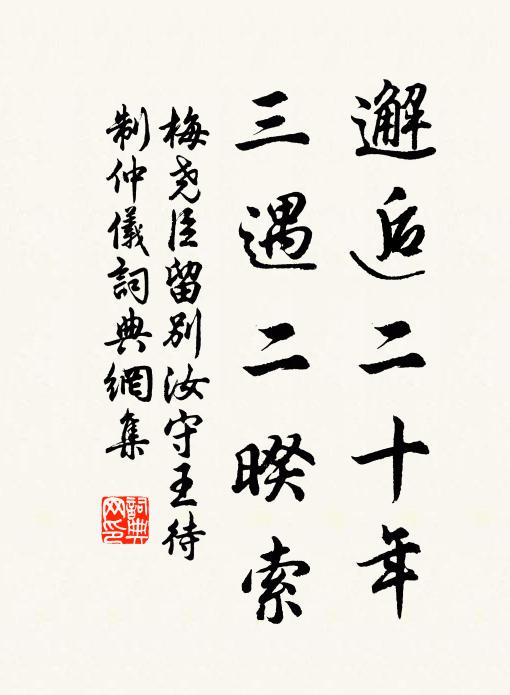 邂逅二十年
三遇二暌索
梅尧臣留别汝守王待
制仲儀詞典網集
詞典網印